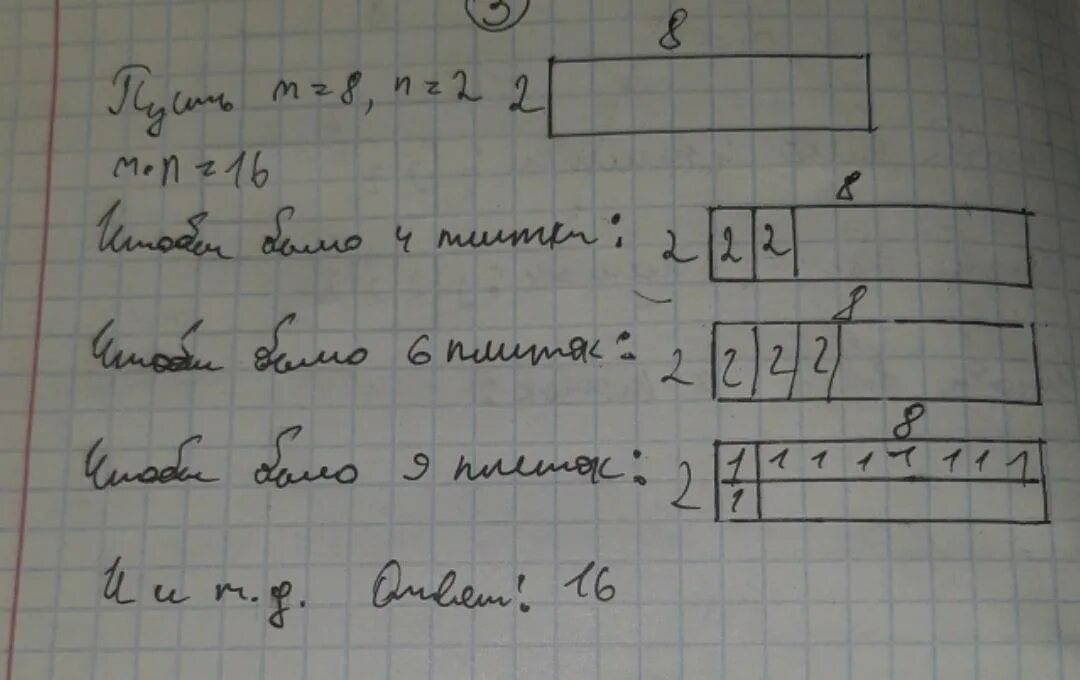 3
8
Пусть m = 8, n = 2 2
m·n = 16
8
Чтобы было 4 плитки: 2 2 2
8
Чтобы было 6 плиток: 2 2 2 2
8
Чтобы было 9 плиток: 2 1 1 1 1 1 1 1 1
1
И и т.д. Ответ: 16